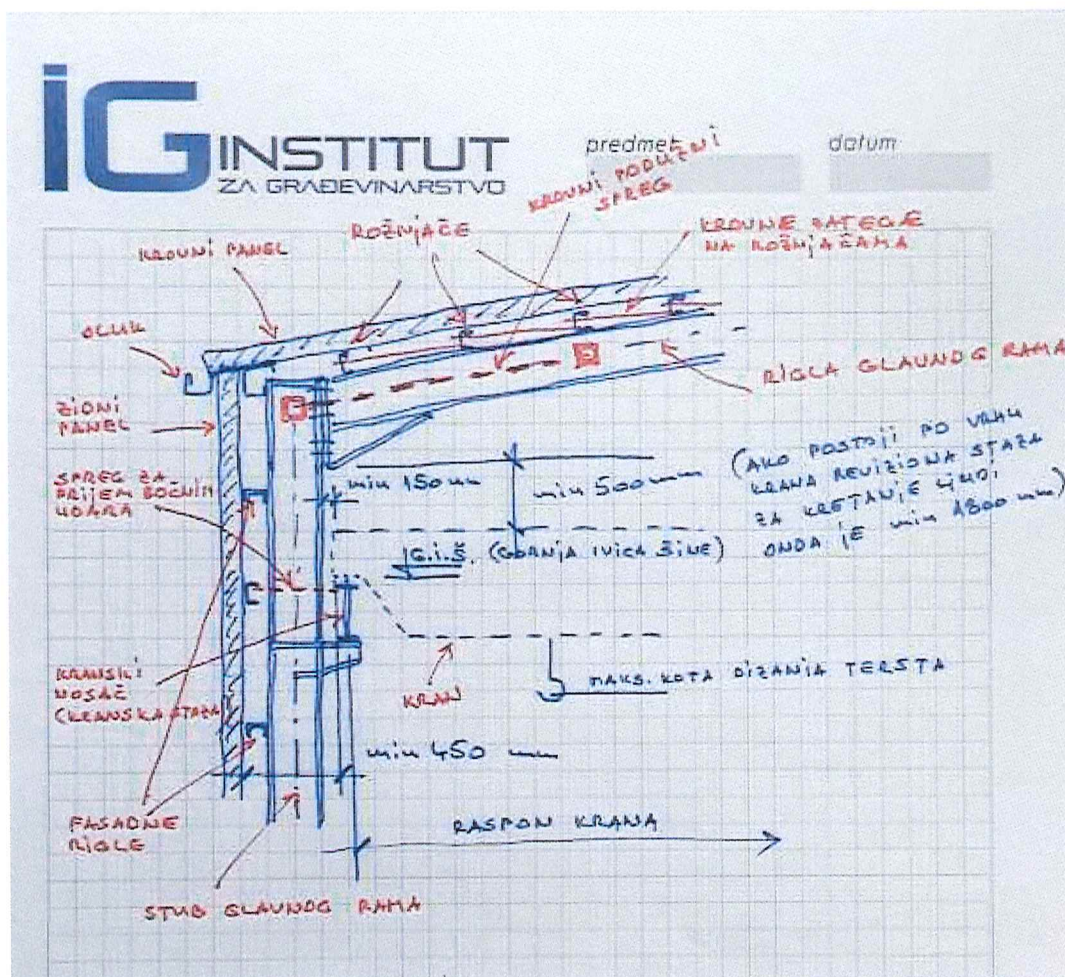 IG INSTITUT
ZA GRAĐEVINARSTVO
predmet
datum
KROVNI PODUŽNI
SPREG
KROVNI PANEL
ROŽNJAČE
KROVNE ZATEGE
NA ROŽNJAČAMA
OLUK
RIGLA GLAVNOG RAMA
ZIDNI
PANEL
SPREG ZA
PRIJEM BOČNIH
UDARA
min 150 mm
min 500 mm
(AKO POSTOJI PO VRHU
KRANA REVIZIONA STAZA
ZA KRETANJE LJUDI
ONDA JE min 1800 mm)
G.i.Š. (GORNJA IVICA ŠINE)
KRANSKI
NOSAČ
(KRANSKA STAZA)
KRAN
MAKS. KOTA DIZANJA TERETA
min 450 mm
FASADNE
RIGLE
RASPON KRANA
STUB GLAVNOG RAMA